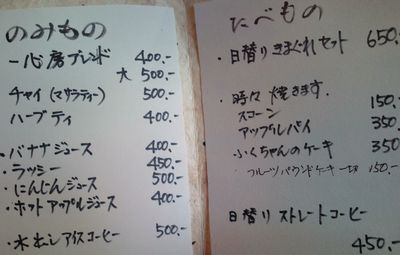 のみもの
一心房ブレンド 400.-
大 500.-
チャイ (マサラティー) 500.-
ハーブティ 400.-
・バナナジュース 400.-
・ラッシー 450.-
・にんじんジュース 500.-
・ホットアップルジュース 400.-
・水出しアイスコーヒー 500.-
たべもの
・日替りきまぐれセット 650.-
・時々焼きます.
スコーン 150.-
アップルパイ 350.-
ふくちゃんのケーキ 350.-
フルーツパウンドケーキ一切 150.-
日替り ストレートコーヒー
450.-